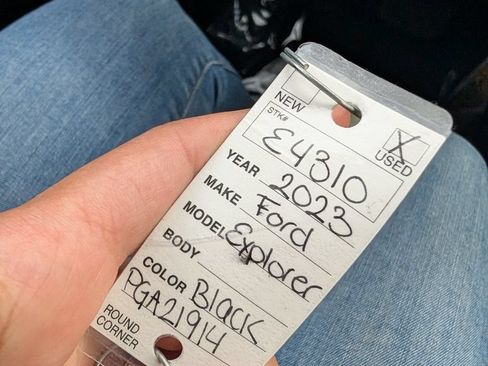 NEW
X USED
STK# E4310
YEAR 2023
MAKE Ford
MODEL Explorer
BODY
COLOR Black
PGA21914
ROUND
CORNER